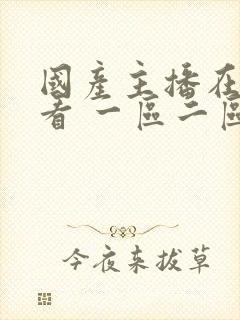 國產主播在
看 一區二區
今夜来拔草